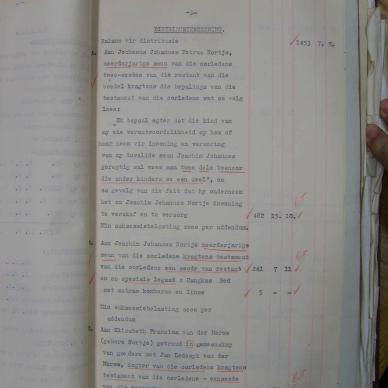 -3-
DISTRIBUSIEREKENING.
Balans vir distribusie 1453 7. 7.
Aan Johannes Petrus Nortje,
meerderjarige seun van die oorledene
twee-sesdes van die restant van die
boedel kragtens die bepalings van die
testament van die oorledene wat as volg
lees:
"Ek bepaal egter dat die kind van
my wie verantwoordelikheid op hom of
haar neem vir inwoning en versorging
van my invalide seun Joachim Johannes
geregtig sal wees aan twee dele teenoor
die ander kinders se een deel", en
as gevolg van die feit dat hy onderneem
het om Joachim Johannes Nortje inwoning
te verskaf en te versorg 482 15. 10.
Min suksessiebelasting soos per addendum.
Aan Joachim Johannes Nortje meerderjarige
seun van die oorledene kragtens testament
van die oorledene een sesde van restant 241 7 11
en as spesiale legaat a Hangkas Bed
met matras komberse en linne 5 - -
Min suksessiebelasting soos per
addendum
Aan Elizabeth Francina van der Merwe
(gebore Nortje) getroud in gemeenskap
van goedere met Jan Lodewyk van der
Merwe, dogter van die oorledene kragtens
testament van die oorledene - eensesde